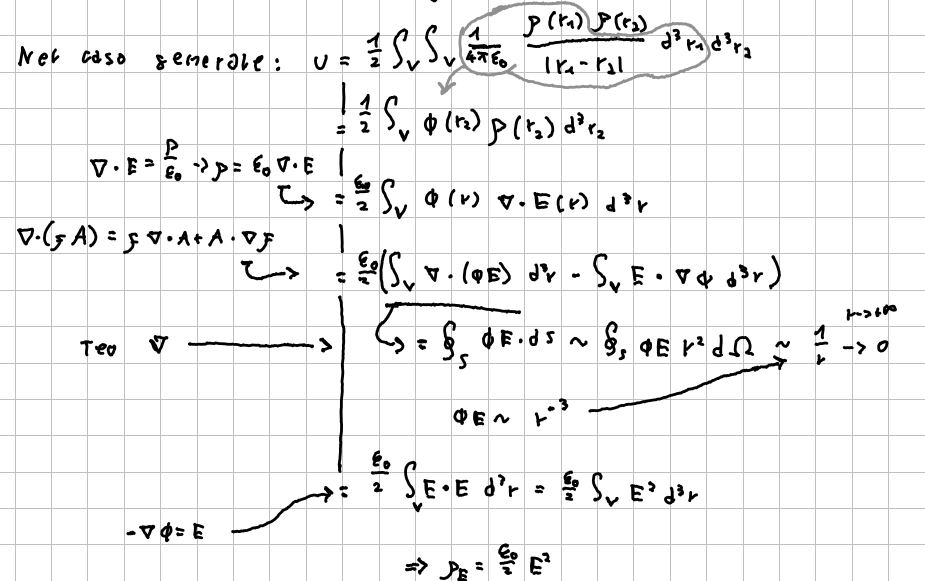 Nel caso generale: U = 1/2 ∫_V ∫_V 1/(4πε₀) ρ(r₁) ρ(r₂) / |r₁ - r₂| d³r₁ d³r₂
= 1/2 ∫_V ϕ(r₂) ρ(r₂) d³r₂
∇·E = ρ/ε₀ → ρ = ε₀ ∇·E
= ε₀/2 ∫_V ϕ(r) ∇·E(r) d³r
∇·(f A) = f ∇·A + A·∇f
= ε₀/2 (∫_V ∇·(ϕE) d³r - ∫_V E·∇ϕ d³r)
Teo ∇ → = ∮_S ϕE·dS ~ ∮_S ϕE r² dΩ ~ 1/r → 0 r→+∞
ϕE ~ r⁻³
= ε₀/2 ∫_V E·E d³r = ε₀/2 ∫_V E² d³r
-∇ϕ = E
⇒ ρ_E = ε₀/2 E²